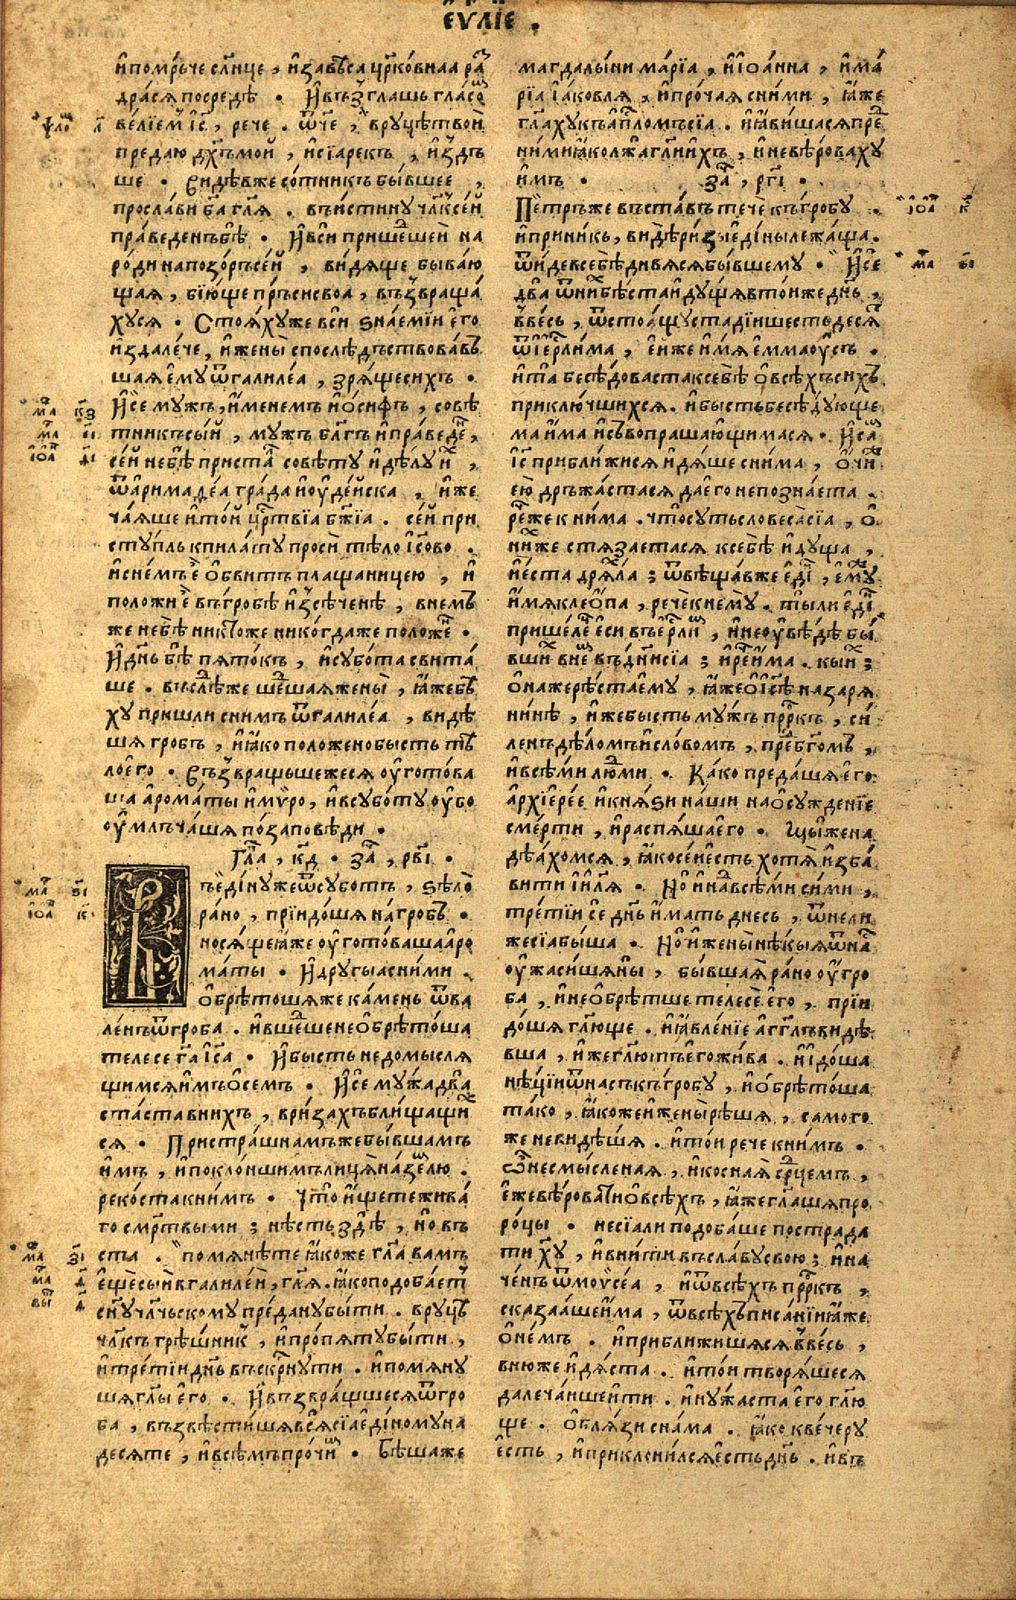 еѵⷢ҇лїе .
и҆помрьче сл҃нце , и҆завѣса цр҃ко́внаа раⷥ
драся посредѣ • И҆възⷢ҇лашь гла́соⷨ
ве́лїемъ і҃с , рече . ѿч҃е , врꙋцѣтвои
предаю дх҃ъмои , и҆сїарекъ , и҆здъ
ше • Видѣвже со́тникъ бы́вшее ,
просла́ви б҃а гл҃я . въи́стинꙋ чл҃ксе́й
пра́веденъбѣ • И҆вси прише́дшеи на
ро́ди напозо́ръсе́й , ви́дяще быва́ю
щая , бїю́ще пе́рьсисвоа , възвраща́
хꙋся • Стоя́хꙋже вси ѕна́емїи е҆го
и҆здале́че , и҆жены̀ спослѣ́дъствовавъ
шая е҆мꙋ ѿгалиле́а , зря́щесихъ •
И҆се мꙋжъ , и҆́менемъ и҆о́сифъ , совѣ́
тникъсы́й , мꙋжъ бл҃гъ и҆пра́веденъ ,
се́й небѣ̀ приста́лъ совѣ́тꙋ и҆дѣ́лꙋ и҆́хъ ,
ѿа҆римаѳе́а гра́да и҆ꙋде́йска , и҆́же
ча́яше и҆то́й црⷭ҇твїа бж҃їа . се́й при
стꙋ́пль кпила́тꙋ проси̇̀ тѣ́ло і҆с҃ово .
и҆сне́мъ е҆̀ о҆бви́тъ плащани́цею , и҆
положи̇̀ е҆̀ въгро́бѣ и҆зсѣ́ченѣ , внемъ
же небѣ̀ никто́же нико́гдаже положе́нъ •
И҆дн҃ь бѣ̀ пято́къ , и҆сꙋбо́та свита́
ше . въслѣ́дже ше́дшаяжены̀ , ꙗ҆̀жебѣ
хꙋ пришли̇̀ сни́мъ ѿгалиле́а , ви́дѣ
шя гробъ , и҆ꙗ҆́ко положено бысть тѣ́
лое҆го • Възвращьшежеся ᲂу҆гото́ва
ша а҆рома́ты и҆мѵ́ро , и҆всꙋбо́тꙋ ᲂу҆бо
ᲂу҆млъча́шя позаповѣди •
Гла҃ , к҃д • за҃ , рв҃і •
Въе҆ди́нꙋже ѿсꙋботъ , ѕѣло̀
ра́но , прїидо́шя на́гробъ .
нося́ще ꙗ҆̀же ᲂу҆гото́ваша а҆ро
ма́ты • И҆дрꙋгыа сни́ми .
о҆брѣтошяже ка́мень ѿва
ле́нъ ѿгроба . и҆вше́дше не о҆брѣто́ша
телесе гⷭ҇а і҆с҃а • И҆бы́сть недомысля
щимся и҆мъ о҆семъ • И҆се мꙋ́жа два̀
ста́ставнихъ , вризахъ блища́щи́х
ся • Пристра́шнамъже бы́вшамъ
и҆́мъ , и҆покло́ншимъ лица́ на́землю .
реко́стакни́мъ • Что̀ и҆́щетежива́
го смр҃твыми ; нѣ́сть здѣ̀ , но въ
ста . помянѣте ꙗ҆́коже гл҃а вамъ
е҆ще́сы́и вгалиле́и , гл҃я . ꙗ҆́коподоба́етъ
сн҃ꙋ чл҃чьскомꙋ пре́данꙋ бы́ти . врꙋцѣ
чл҃къ грѣ́шникъ , и҆про́пятꙋ бы́ти ,
и҆тре́тїи дн҃ь въскрⷭ҇нꙋти . и҆помянꙋ
шя гл҃ы е҆го • И҆възвра́щшеся ѿгро
ба , възвѣсти́шя вся̀ сїа е҆ди́номꙋ на
десяте , и҆всѣ́мъ про́чимъ • Бѣ́шаже
магдалы́ни ма́рїа , и҆і҆оа́нна , и҆ма́
рїа і҆а́ковля , и҆про́чая сни́ми , ꙗ҆̀же
гл҃ахꙋ къа҆пⷭ҇ломъ сїа . и҆ꙗ҆ви́шася преⷣ
ни́ми ꙗ҆ко лжа̀ гл҃и и҆́хъ , и҆невѣ́ровахꙋ
и҆́мъ • за҃ , рг҃і •
Пе́тръже въста́въ тече̇̀ къгро́бꙋ .
и҆прини́къ , ви́дѣ ри́зы е҆ди́ны лежа́ща .
ѿи́де в себѣ̀ дивя́ся бы́вшемꙋ • И҆се
два̀ ѿни́хъ бѣ́ста и҆дꙋ́щя вто́нже дн҃ь ,
ввесь , ѿстоя́щꙋ ста́дїи шестьдеся́т
ѿі҆ерⷭ҇ли́ма , е҆́йже и҆́мя е҆ммаоу́съ .
и҆та̀ бесѣ́доваста ксебѣ̀ о҆всѣ́хъ си́хъ
приключшихся . и҆бы́сть бесѣдꙋюще
ма и҆́ма и҆съвопраша́ющимася • И҆са́мъ
і҃с прибли́жися и҆дя́ше сни́ма , о҆́чи
е҆ю̀ држа́стася дае҆го̀ непозна́ета .
рече́же к ни́ма . что̀сꙋть словеса̀ сїа , о҆
ни́хже стяза́етася ксебѣ̀ и҆дꙋща ,
и҆е҆́ста дря́хла ; ѿвѣща́вже е҆ди́нъ , е҆мꙋ́же
и҆́мя клео́па , рече̇̀ кнемꙋ̀ . ты́ли е҆ди́нъ
прише́лецъ е҆си въі҆ерⷭ҇ли́мъ , и҆неᲂу҆вѣ́дѣ бы́
вшихъ внемъ въдн҃и сїа ; и҆рече́ и҆́ма . кы́ихъ ;
о҆нажерѣ́ста е҆мꙋ , ꙗ҆̀же о҆і҆с҃ѣ назаря
ни́нѣ , и҆́же бы́сть мꙋжъ прⷪ҇ркъ , си́
ленъ дѣ́ломъ и҆сло́вомъ , преⷣ бг҃омъ ,
и҆всѣ́ми людми • Ка́ко преда́шя е҆го̀
а҆рхїере́е и҆кня́ѕи на́ши на о҆сꙋжде́нїе
сме́рти , и҆распя́ша е҆го • Мы́же на
дѣ́ахомся , ꙗ҆́ко се́й е҆́сть хотя́и и҆зба́
вити і҆и҃ля • Но́ и҆надвсѣ́ми сими ,
тре́тїи се̇̀ дн҃ь и҆́мать дне́сь , ѿне́ли
же сїа бы́ша • Но́ и҆жены̀ нѣ́кыя ѿна́съ
ᲂу҆жаси́шя ны̀ , бы́вшая ра́но ᲂу҆гро
ба , и҆необрѣ́тше телесѐ е҆го̀ . прїи
до́шя гл҃юще . и҆ꙗ҆вле́нїе а҆гг҃лъ ви́дѣ
вша , и҆́же гл҃ютъ е҆го жи́ва . и҆и҆до́ша
нѣ́цїи ѿнасъ къгро́бꙋ , и҆о҆брѣто́ша
та́ко , ꙗ҆́коже и҆жены̀ рѣ́шя , самого
же неви́дѣшя . и҆то́и рече кни́мъ .
ѽнесмы́сленая , и҆ко́сная срⷣцемъ ,
е҆́же вѣ́ровати о҆всѣ́хъ , ꙗ҆̀же гл҃ашя про
ро́цы • несїа́ли подоба́ше пострада
ти хⷭ҇ꙋ , и҆вни́ти въсла́вꙋ свою̀ ; и҆на
че́нъ ѿмоѷсе́а , и҆ѿвсѣ́хъ прⷪ҇ркъ ,
сказа́аше и҆́ма , ѿвсѣ́хъ писа́нїи ꙗ҆̀же
о҆не́мъ . и҆прибли́жишяся ввесь ,
внюже и҆дя́ста . и҆то́и творя́шеся
дале́чаише и҆ти . и҆нꙋ́жаста е҆го гл҃ю
ще . о҆бля́зи сна́ма . ꙗ҆́ко кве́черꙋ
е҆́сть , и҆приклони́лся е҆́сть дн҃ь . и҆въ